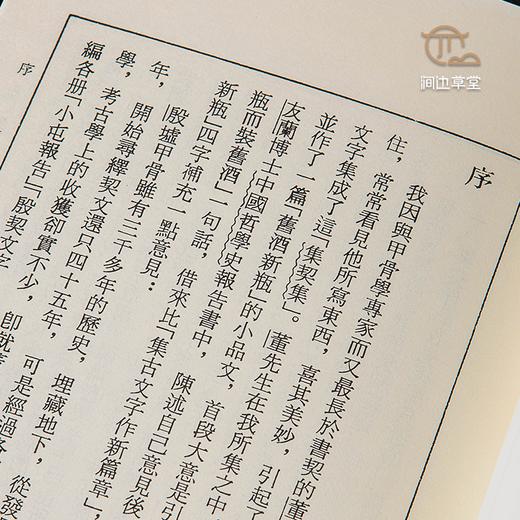 涧边草堂
序
我因與甲骨學專家而又最長於書契的董
住，常常看見他所寫東西，喜其美妙，引起了
文字集成了這「集契集」。董先生在我所集之中
並作了一篇「舊酒新瓶」的小品文，首段大意是引
友蘭博士中國哲學史報告書中，陳述自己意見後
瓶而裝舊酒」一句話，借來比「集古文字作新篇章」，
新瓶」四字補充一點意見：
殷墟甲骨雖有三千多年的歷史，埋藏地下，
年，開始尋繹契文還只四十五年，可是經過
學，考古學上的收獲卻實不少，卽就
編各册「小屯報告」殷契文字
從發
序